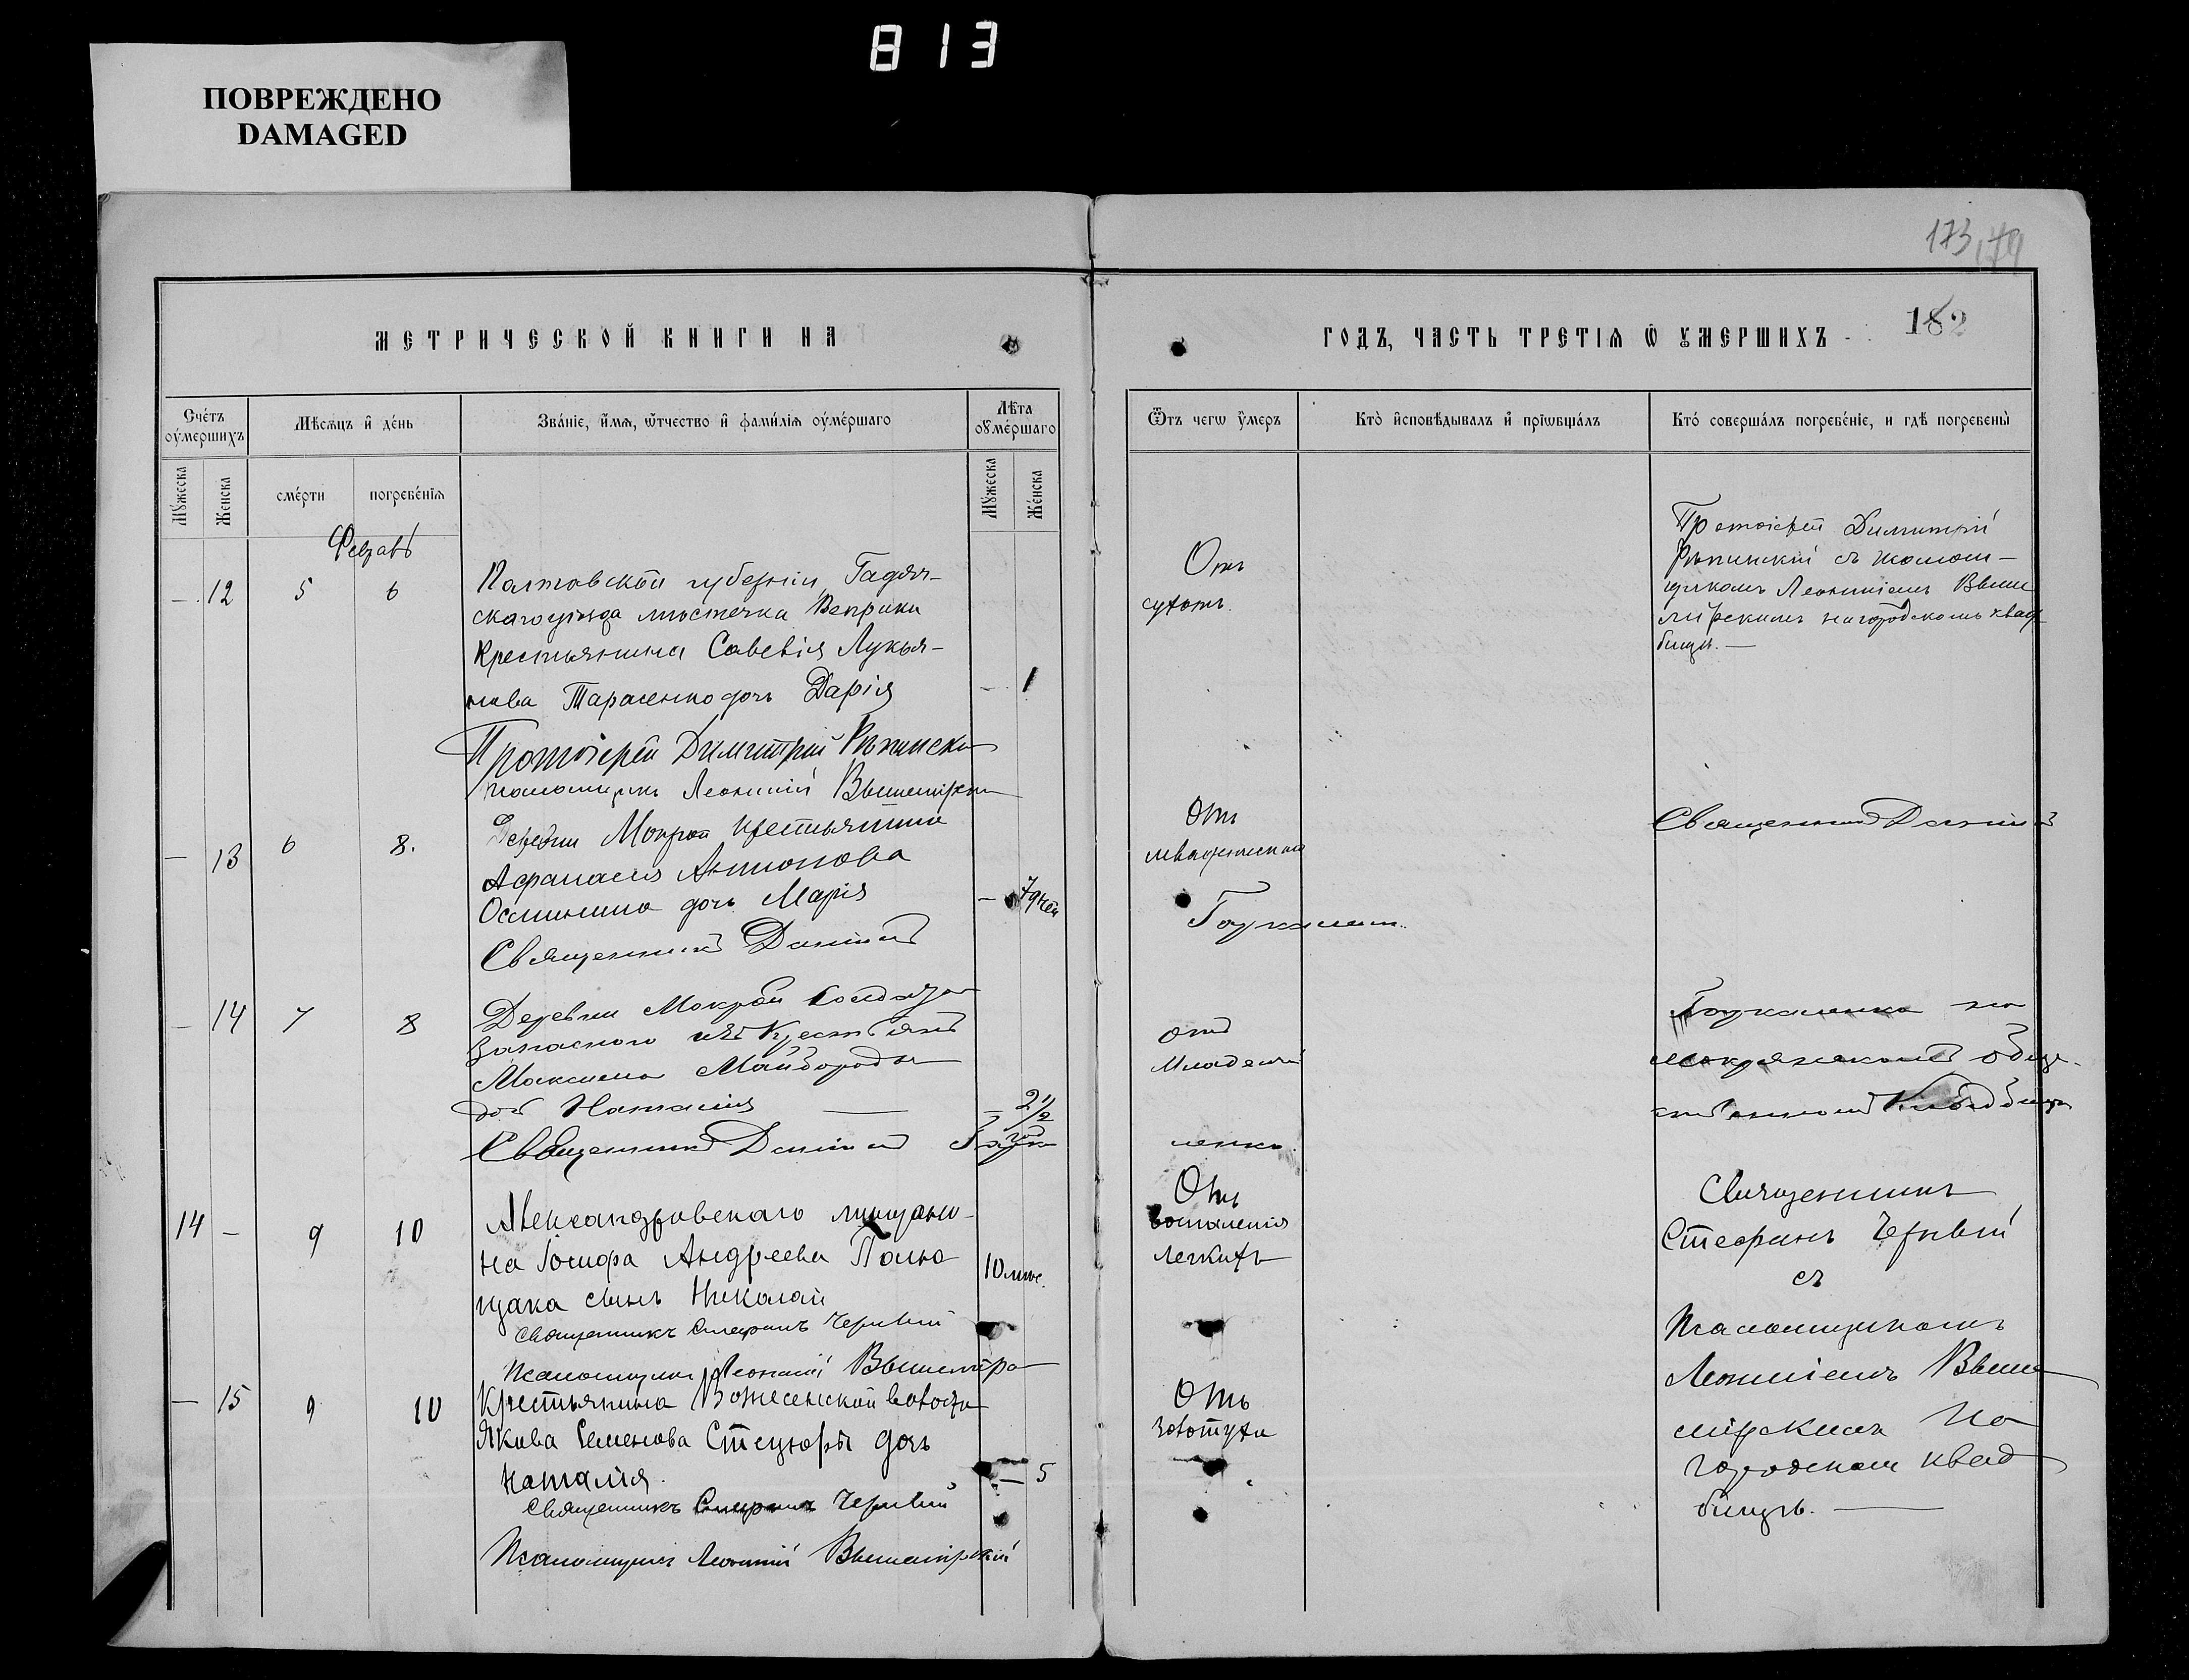 813
ПОВРЕЖДЕНО
DAMAGED
173
179
МЕТРИЧЕСКОЙ КНИГИ НА
ГОДЪ, ЧАСТЬ ТРЕТІѦ Ѿ ОУМЕРШИХЪ
182
Сче́тъ оу҆ме́ршихъ
Мѣ́сѧцъ и҆ де́нь
Зва́ніе, и҆́мѧ, ѻ҆́тчество и҆ фами́лїѧ оу҆ме́ршаго
Лѣ̑та оу҆ме́ршаго
Ѿ чегѡ̀ оу҆́меръ
Кто̀ и҆сповѣ́дывалъ и҆ прїѡбща́лъ
Кто̀ соверша́лъ погребе́нїе, и гдѣ̀ погребены̀
Мꙋ́жеска
Же́нска
сме́рти
погребе́нїѧ
Мꙋ́жеска
Же́нска
Феврал
— 12 5 6
Полтавской губерніи, Гадяч-
скаго уѣзда мѣстечка Веприки
крестьянина Савелія Лукья-
нова Тарасенко дочь Дарія
— 1
Протоіерей Димитрій Рѣпински
псаломщикъ Леонтій Вышемірскій
Отъ
сухотъ.
Протоіерей Димитрій
Рѣпинскій съ псалом-
щикомъ Леонтіемъ Выше
мірскимъ на городскомъ клад
бищѣ. —
— 13 6 8.
Деревни Мокрой крестьянина
Афанасія Антонова
дочь Марія
— 7 дней
Священникъ Даніилъ
Отъ
младенческой
Священникъ Даніилъ
— 14 7 8
Деревни Мокрой Солдата
Запаснаго изъ Крестьянъ
Максима Майбороды
доч Наталія —
— 2 1/2
год
Священникъ Даніилъ
отъ
Младенчей
на
мокрянскомъ обще-
ственномъ Кладбищѣ
14 — 9 10
Александровскаго мѣщани-
на Іосифа Андреева
щака сынъ Николай
10 мѣс.
Священникъ Стефанъ Чернвый
Псаломщикъ Леонтій Вышемірс
Отъ
воспаленія
легкихъ
Священникъ
Стефанъ
съ
Псаломщикомъ
Леонтіемъ Выше
мірскимъ На
городском клад
бищѣ. —
— 15 9 10
Крестьянина Вознесенской волости
Якова Семенова Стецюры дочь
Наталія.
— 5
Священникъ Стефанъ
Псаломщикъ Леонтій Вышемірскій
Отъ
золотухи